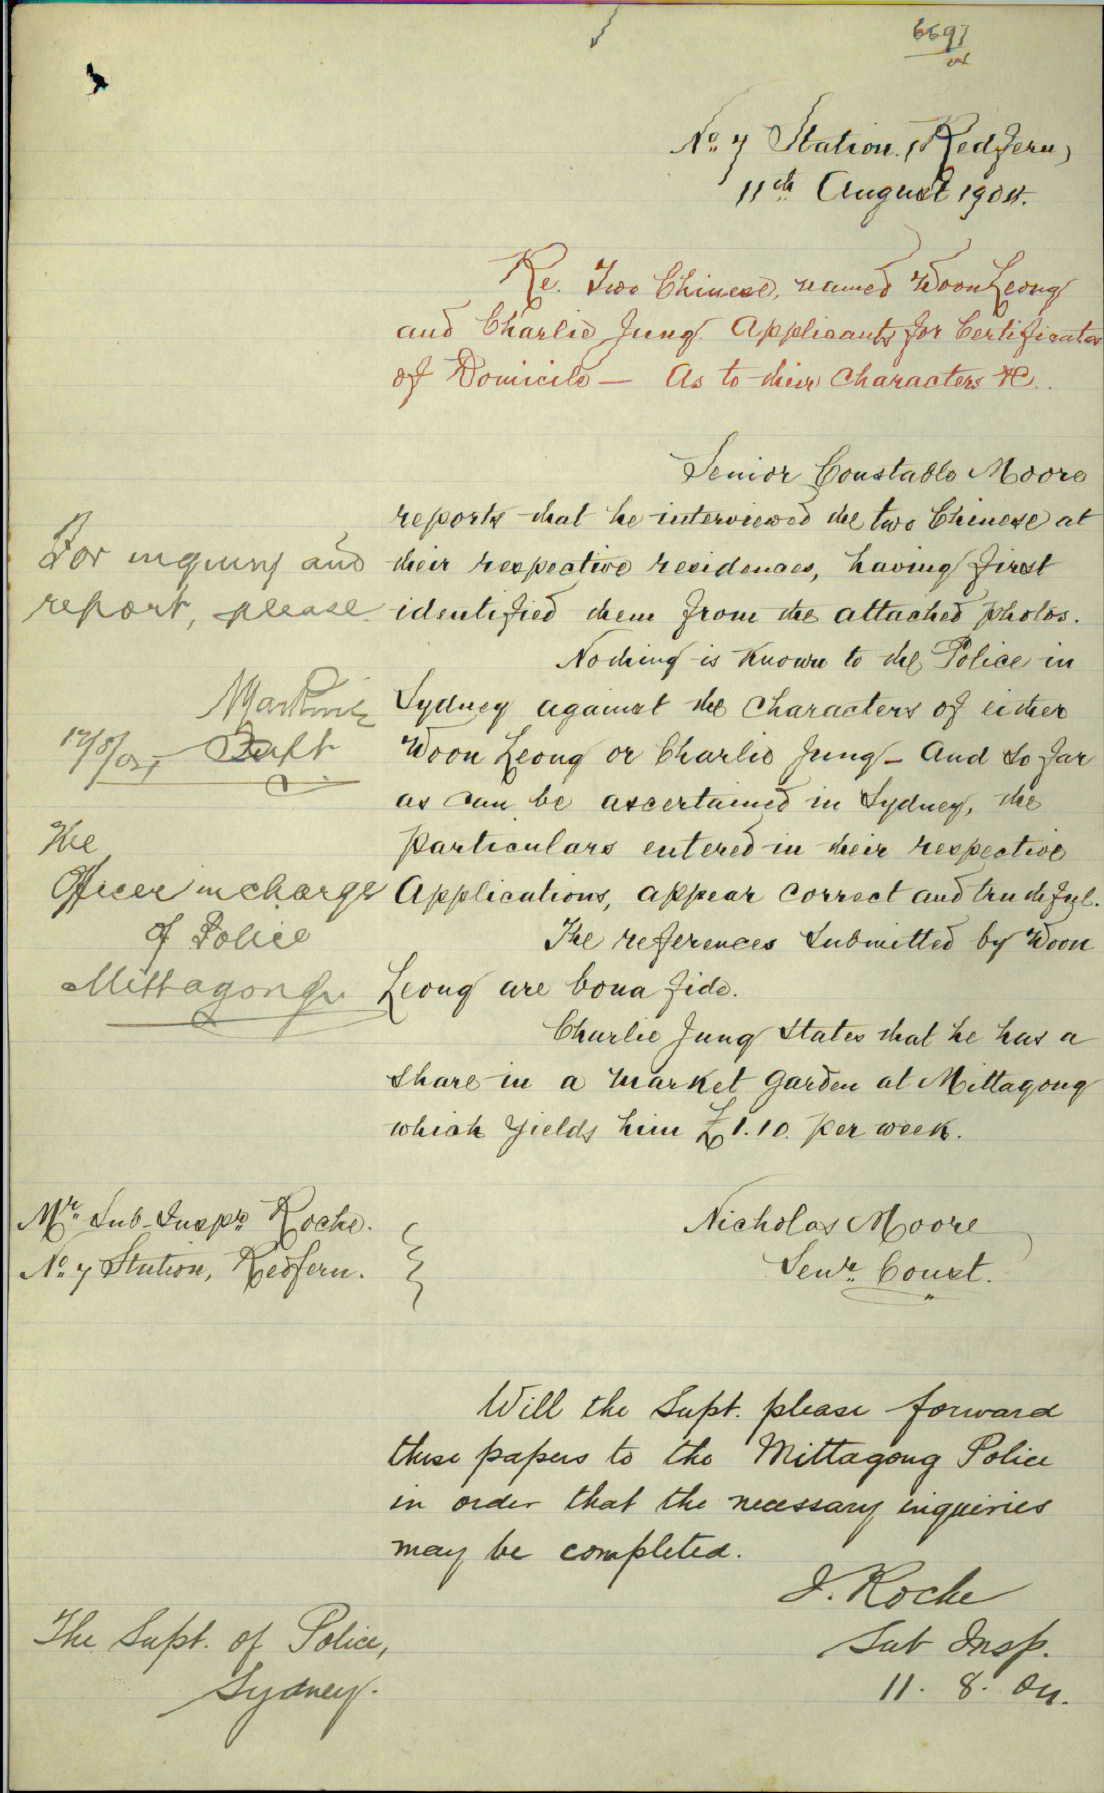 No. 7 Station, (Redfern)
11th August 1904.
Re. Two Chinese, named Woon Leong
and Charlie Jung Applicants for Certificates
of Domicile — As to their Characters &c.
Senior Constable Moore
reports that he interviewed the two Chinese at
their respective residences, having first
identified them from the attached photos.
Nothing is known to the Police in
Sydney against the Characters of either
Woon Leong or Charlie Jung — And so far
as can be ascertained in Sydney, the
particulars entered in their respective
Applications, appear correct and truthful.
The references submitted by Woon
Leong are bona fide.
Charlie Jung states that he has a
share in a market garden at Mittagong
which yields him £1.10. per week.
Nicholas Moore
Senr. Const.
Mr. Sub-Inspr. Roche.
No. 7 Station, Redfern.
Will the Supt. please forward
these papers to the Mittagong Police
in order that the necessary inquiries
may be completed.
J. Roche
Sub Insp.
11. 8. 04.
The Supt. of Police,
Sydney.
For inquiry and
report, please
Supt
The
Officer in charge
of Police
Mittagong